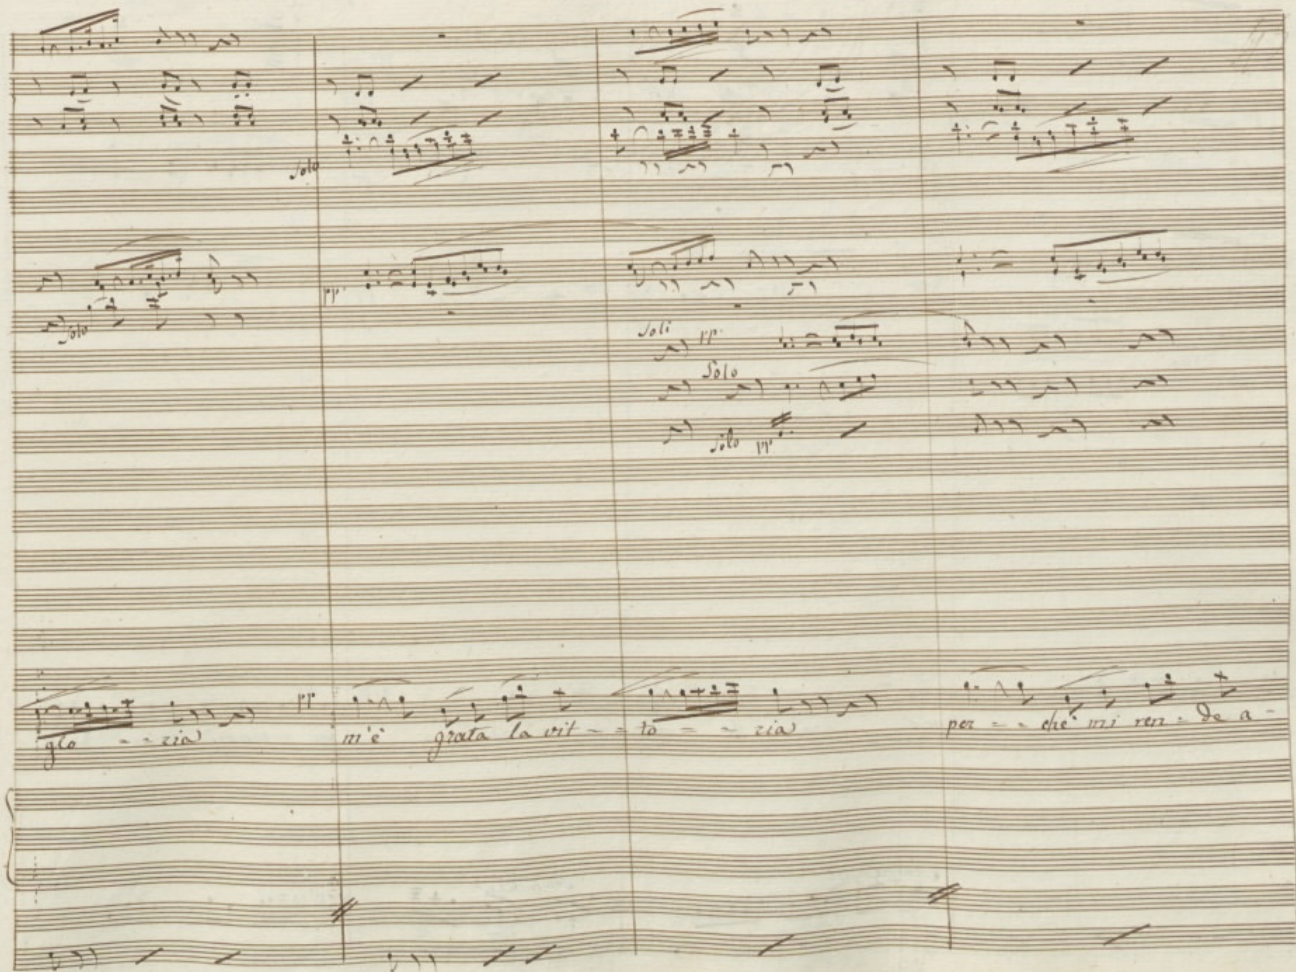 Solo
pp.
Solo
Soli pp.
Solo
Solo pp
pp
glo - - ria m'è grata la vit - - to - - ria per - - chè mi ren - de a -